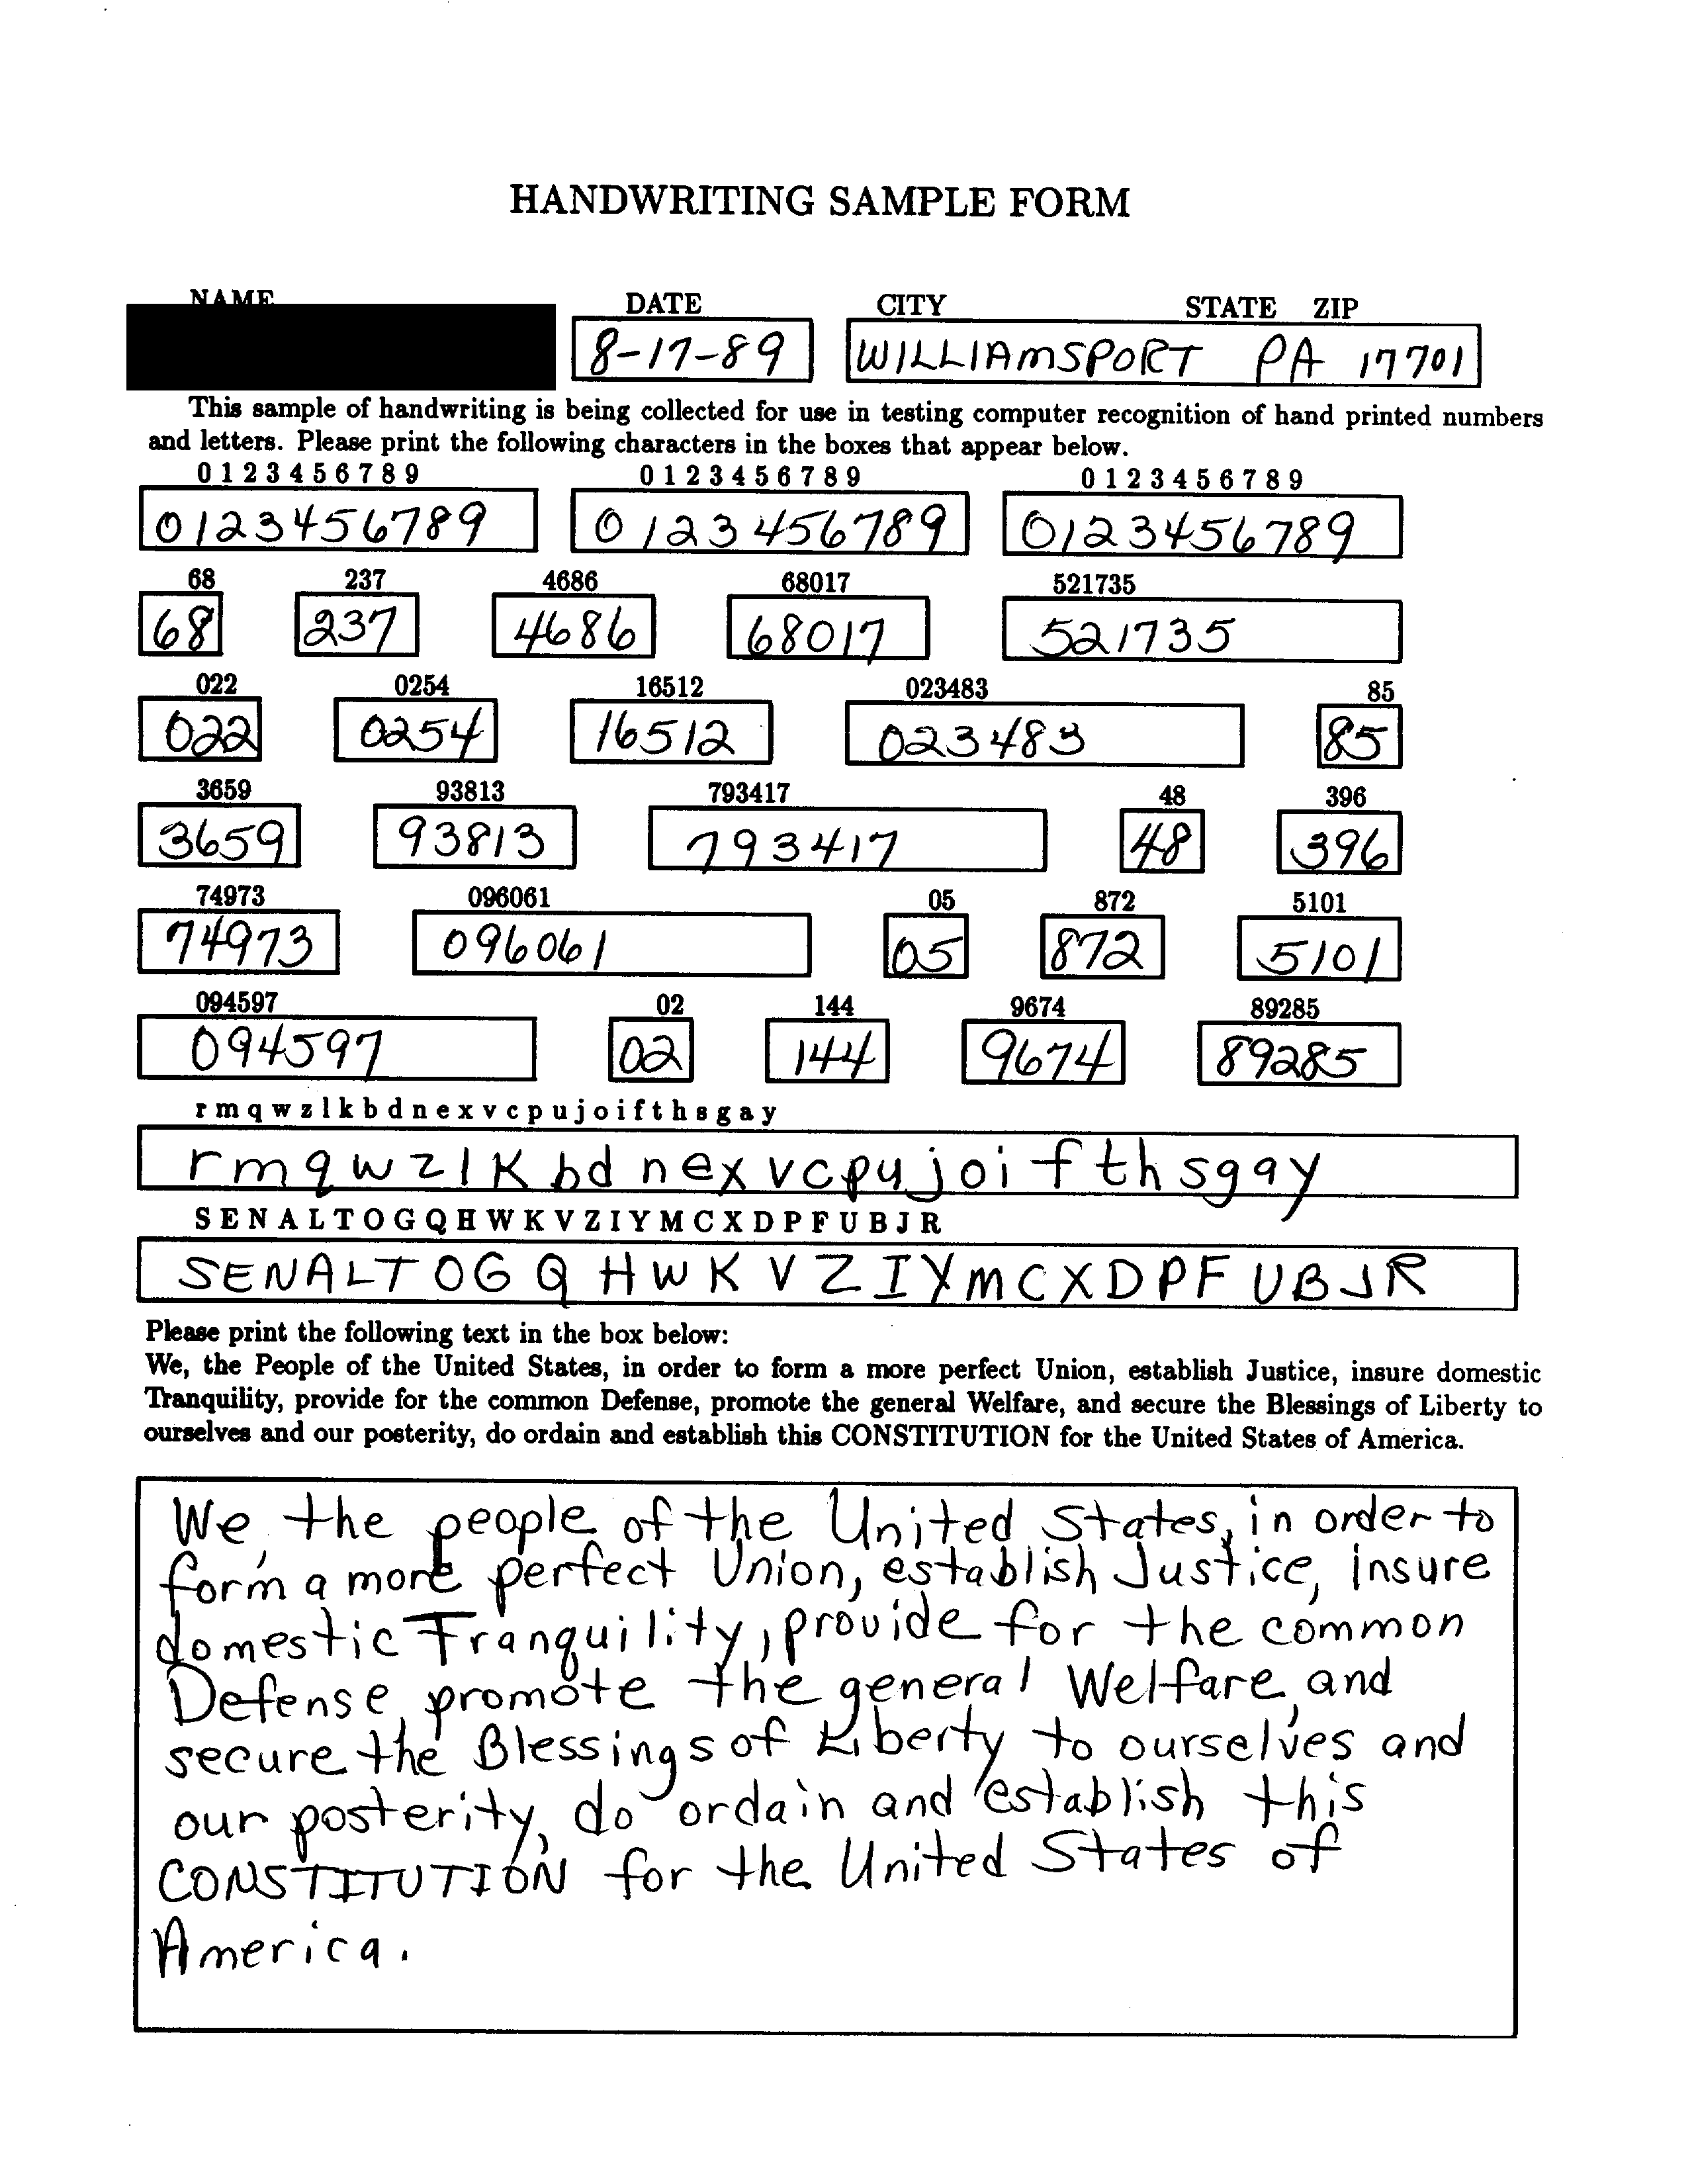 HANDWRITING SAMPLE FORM
NAME DATE CITY STATE ZIP
8-17-89 WILLIAMSPORT PA 17701
This sample of handwriting is being collected for use in testing computer recognition of hand printed numbers
and letters. Please print the following characters in the boxes that appear below.
0 1 2 3 4 5 6 7 8 9 0 1 2 3 4 5 6 7 8 9 0 1 2 3 4 5 6 7 8 9
0123456789 0123456789 0123456789
68 237 4686 68017 521735
68 237 4686 68017 521735
022 0254 16512 023483 85
022 0254 16512 023483 85
3659 93813 793417 48 396
3659 93813 793417 48 396
74973 096061 05 872 5101
74973 096061 05 872 5101
094597 02 144 9674 89285
094597 02 144 9674 89285
r m q w z l k b d n e x v c p u j o i f t h s g a y
r m q w z l K b d n e x v c p u j o i f t h s g a y
S E N A L T O G Q H W K V Z I Y M C X D P F U B J R
S E N A L T O G Q H W K V Z I Y M C X D P F U B J R
Please print the following text in the box below:
We, the People of the United States, in order to form a more perfect Union, establish Justice, insure domestic
Tranquility, provide for the common Defense, promote the general Welfare, and secure the Blessings of Liberty to
ourselves and our posterity, do ordain and establish this CONSTITUTION for the United States of America.
We, the people of the United States, in order to
form a more perfect Union, establish Justice, insure
domestic Tranquility, provide for the common
Defense, promote the general Welfare, and
secure the Blessings of Liberty to ourselves and
our posterity, do ordain and establish this
CONSTITUTION for the United States of
America.